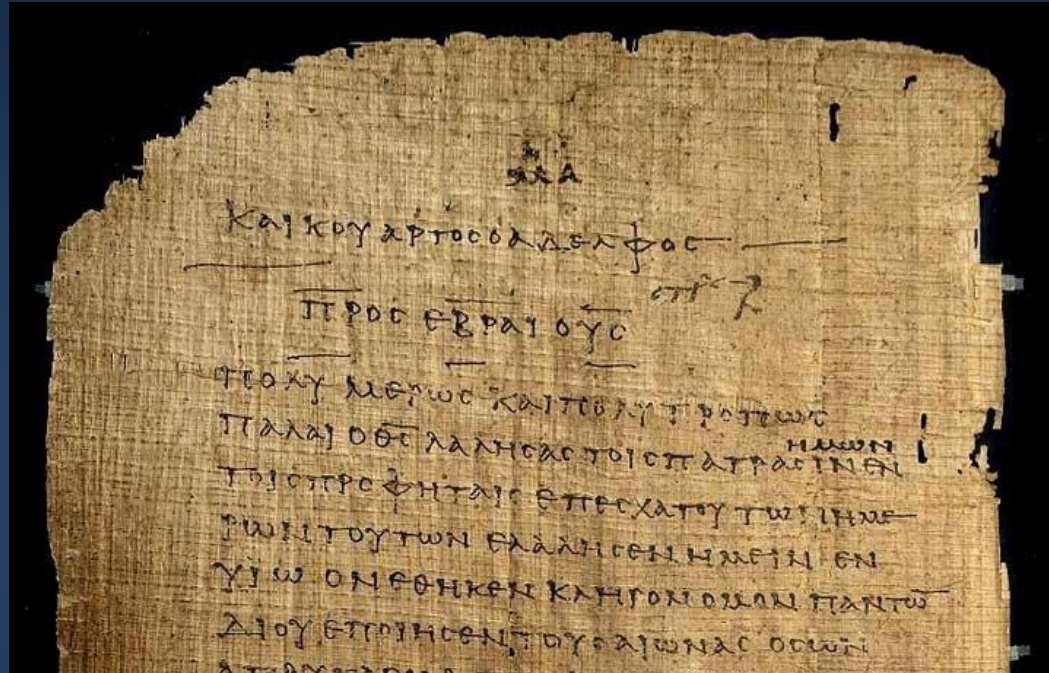 ΜΑ
ΚΑΙ ΚΟΥΑΡΤΟC Ο ΑΔΕΛΦΟC
ΠΡΟC ΕΒΡΑΙΟΥC
ΠΟΛΥΜΕΡΩC ΚΑΙ ΠΟΛΥΤΡΟΠΩC
ΠΑΛΑΙ Ο Θ̅C̅ ΛΑΛΗCΑC ΤΟΙC ΠΑΤΡΑCΙΝ ΗΜΩΝ ΕΝ
ΤΟΙC ΠΡΟΦΗΤΑΙC ΕΠ ΕCΧΑΤΟΥ ΤΩΝ ΗΜΕ
ΡΩΝ ΤΟΥΤΩΝ ΕΛΑΛΗCΕΝ ΗΜΕΙΝ ΕΝ
ΥΙΩ ΟΝ ΕΘΗΚΕΝ ΚΛΗΡΟΝΟΜΟΝ ΠΑΝΤΩ̅
ΔΙ ΟΥ ΕΠΟΙΗCΕΝ ΤΟΥC ΑΙΩΝΑC ΟC ΩΝ